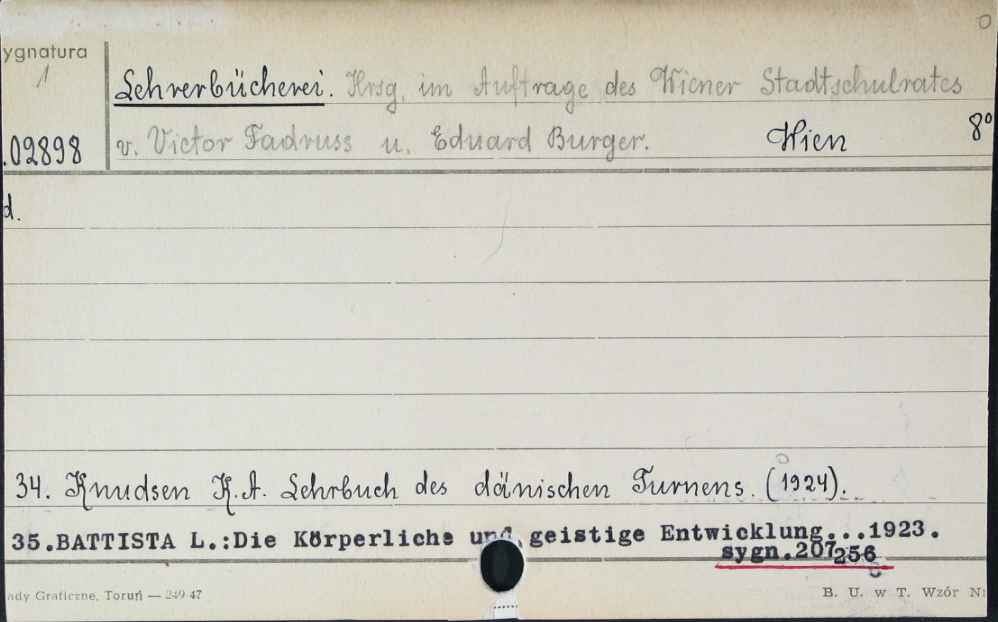 0
ygnatura
1
Lehrerbücherei. Hrsg. im Auftrage des Wiener Stadtschulrates
.02898 v. Victor Fadruss u. Eduard Burger. Wien 8º
d.
34. Knudsen K.A. Lehrbuch des dänischen Turnens. (1924).
35.BATTISTA L.:Die Körperliche und geistige Entwicklung...1923.
sygn.207256
ady Graficzne, Toruń — 249 47 B. U. w T. Wzór N